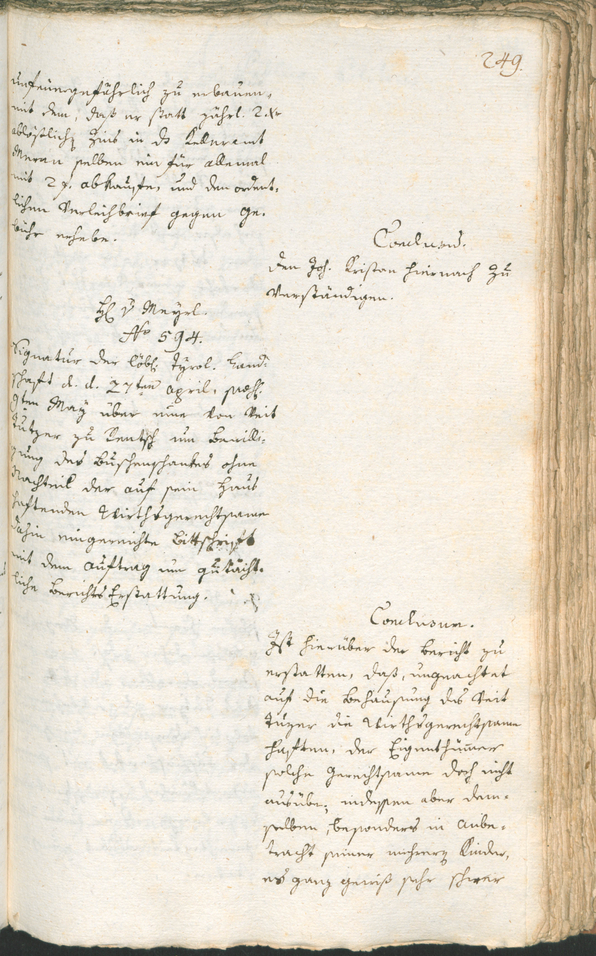 249.
unfeuergefährlich zu erbauen,
mit dem, daß er statt jährl. 2 xr
ablöslich Zins in ds Kelleramt
Meran selben ein für allemal
mit 2 f. abkaufe, und den ordent-
lichen Verleihbrief gegen Ge-
bühr erhebe.
Conclusum.
den Joh. Kriston hiernach zu
verständigen.
H v Meyrl.
No 594.
Signatur der löbl. Tyrol. Land-
schaft d. d. 27ten April, präs.
9ten May über eine von Veit
Tutzer zu Rentsch um Bewilli-
gung des Buschenschankes ohne
Nachteil der auf sein Haus
haftenden Wirthsgerechtsame
dahin eingereichte Bittschrift
mit dem Auftrag um gutächt-
liche Berichts Erstattung.
Conclusum.
Ist hierüber der Bericht zu
erstatten, daß, ungeachtet
auf die Behausung des Veit
Tuzer die Wirthsgerechtsame
haften, der Eigenthümer
solche Gerechtsame doch nicht
ausübe; indessen aber dem-
selben besonders in Anbe-
tracht seiner mehrern Kinder,
es ganz gewiß sehr schwer